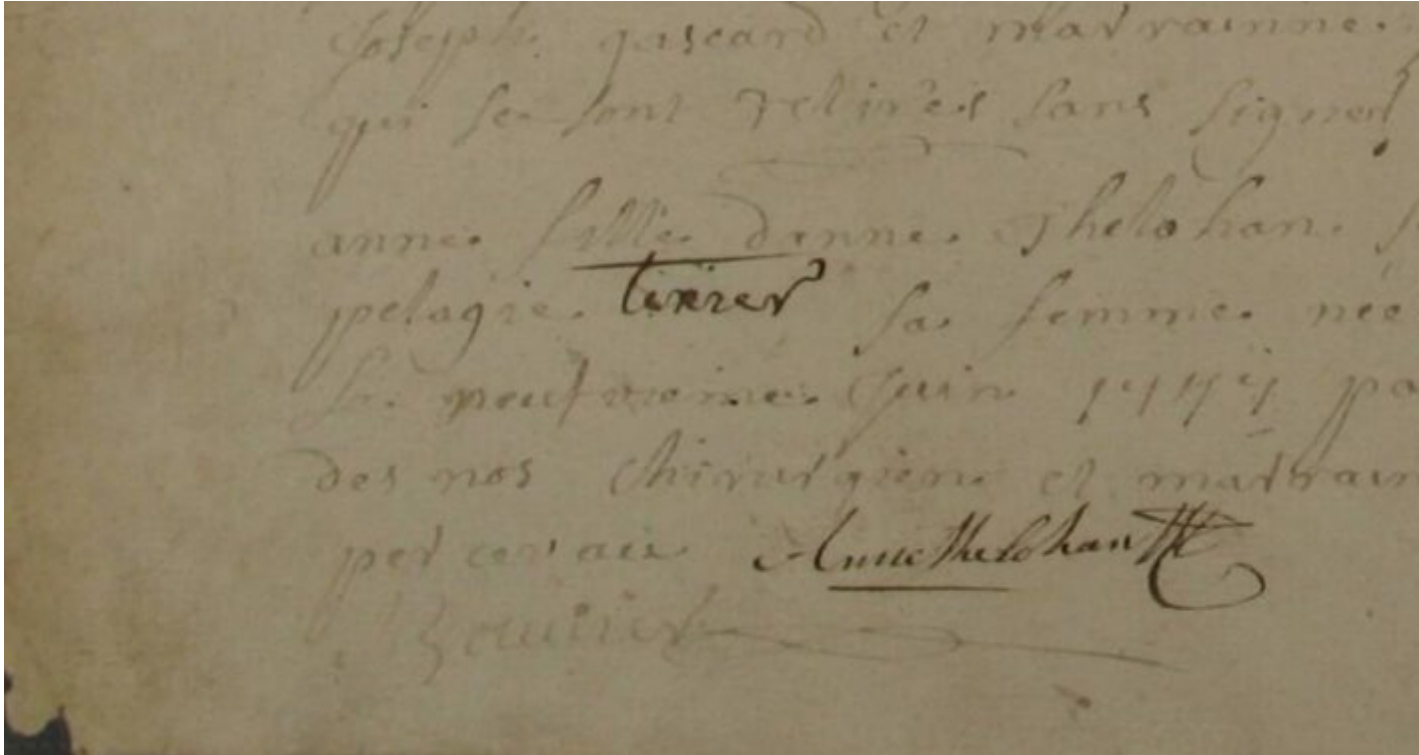 joseph gascard et marrainne
qui se sont retirés sans signer
anne fille danne thelohan
pelagie tixier sa femme née
le neufvieime juin 1777
des nos chirurgien et marrain
percevaux Anne thelohan